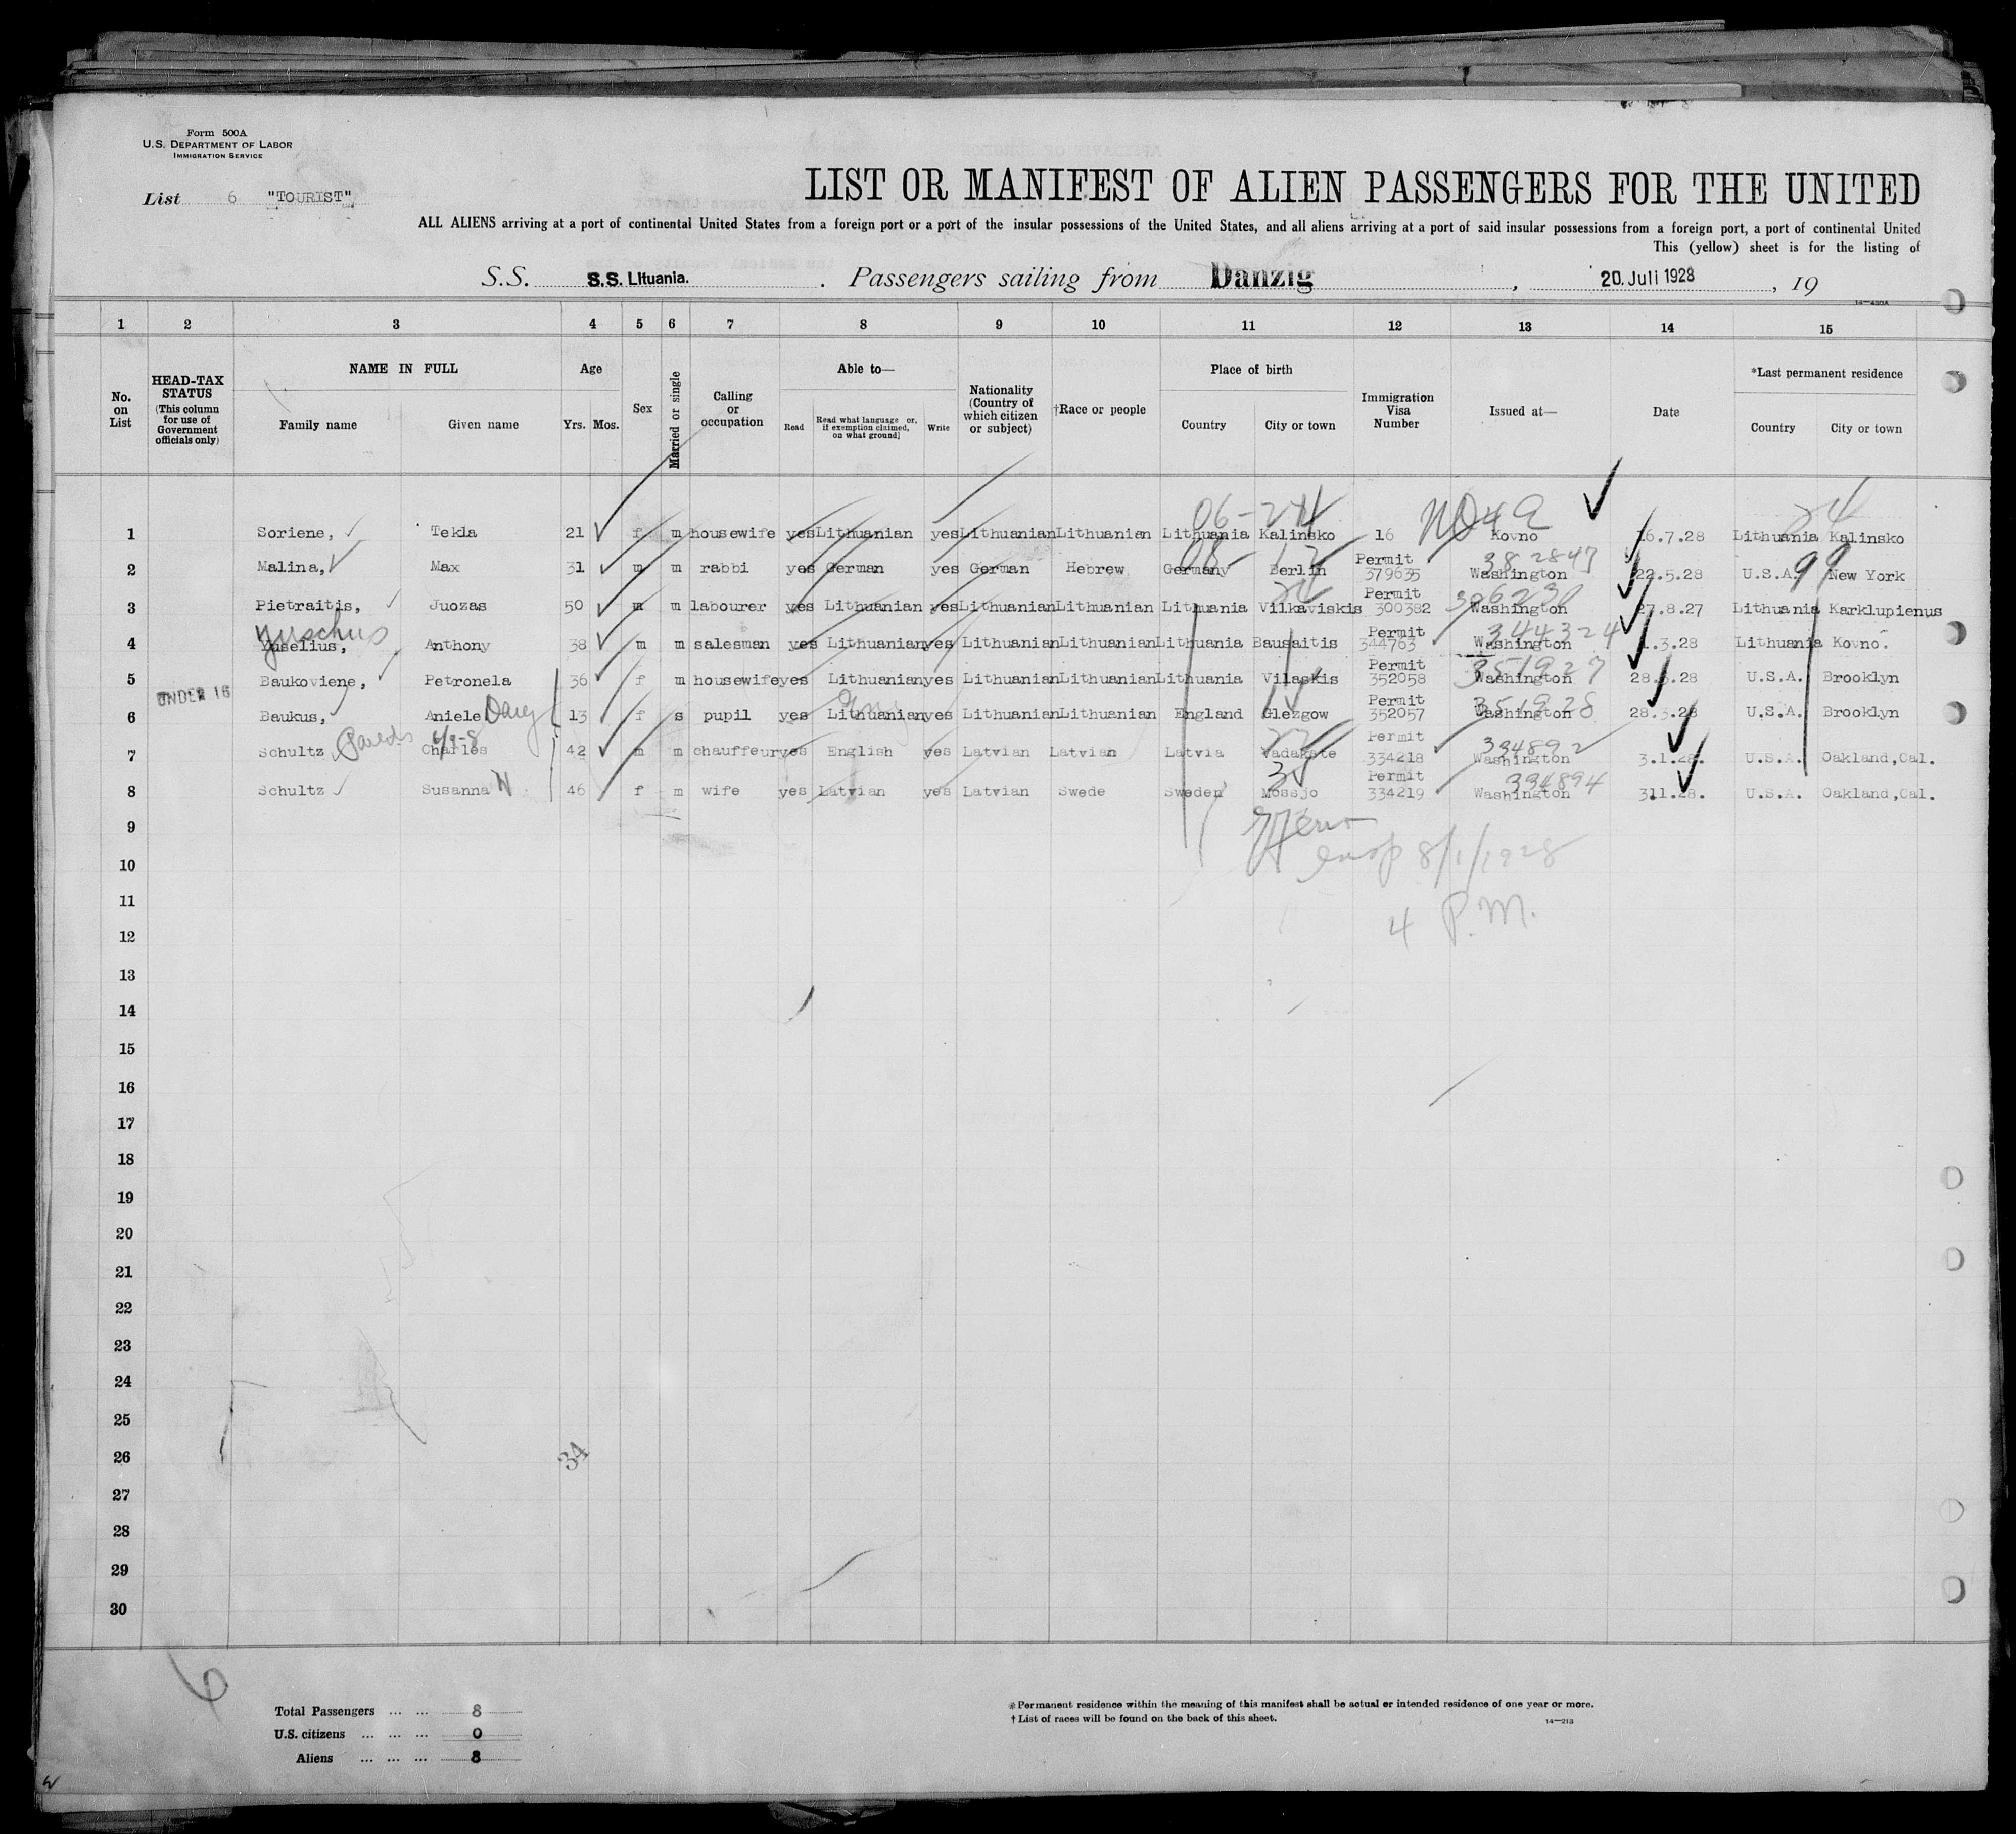 Form 500A
U.S. DEPARTMENT OF LABOR
IMMIGRATION SERVICE
List 6 "TOURIST"
LIST OR MANIFEST OF ALIEN PASSENGERS FOR THE UNITED
ALL ALIENS arriving at a port of continental United States from a foreign port or a port of the insular possessions of the United States, and all aliens arriving at a port of said insular possessions from a foreign port, a port of continental United
This (yellow) sheet is for the listing of
S.S. S.S. Lituania. Passengers sailing from Danzig, 20. Juli 1928, 19
14—430A
1 2 3 4 5 6 7 8 9 10 11 12 13 14 15
No. on List
HEAD-TAX STATUS (This column for use of Government officials only)
NAME IN FULL Family name Given name
Age Yrs. Mos.
Sex
Married or single
Calling or occupation
Able to— Read Read what language or, if exemption claimed, on what ground] Write
Nationality (Country of which citizen or subject)
†Race or people
Place of birth Country City or town
Immigration Visa Number
Issued at—
Date
*Last permanent residence Country City or town
06-24 24
1 Soriene, Tekla 21 f m housewife yes Lithuanian yes Lithuanian Lithuanian Lithuania Kalinsko 16 Kovno 16.7.28 Lithuania Kalinsko
08 Permit 382847 99
2 Malina, Max 31 m m rabbi yes German yes German Hebrew Germany Berlin 379635 Washington 22.5.28 U.S.A. New York
Permit 306230
3 Pietraitis, Juozas 50 m m labourer yes Lithuanian yes Lithuanian Lithuanian Lituania Vilkaviskis 300382 Washington 27.8.27 Lithuania Karklupienus
Yuschus Permit 344324
4 Yuselius, Anthony 38 m m salesman yes Lithuanian yes Lithuanian Lithuanian Lithuania Bausaitis 344763 Washington 1.3.28 Lithuania Kovno.
Permit 351927
5 Baukoviene, Petronela 36 f m housewife yes Lithuanian yes Lithuanian Lithuanian Lithuania Vilaskis 352058 Washington 28.3.28 U.S.A. Brooklyn
UNDER 16 Permit 351928
6 Baukus, Aniele 13 f s pupil yes Lithuanian yes Lithuanian Lithuanian England Glezgow 352057 Washington 28.3.28 U.S.A. Brooklyn
Permit 334892
7 Schultz, Charles 42 m m chauffeur yes English yes Latvian Latvian Latvia Vadakste 334218 Washington 3.1.28. U.S.A. Oakland,Cal.
Permit 334894
8 Schultz Susanna W 46 f m wife yes Latvian yes Latvian Swede Sweden Mossjo 334219 Washington 311.28. U.S.A. Oakland,Cal.
9
insp 8/1/1928
10
11
4 P.M.
12
13
14
15
16
17
18
19
20
21
22
23
24
25
26 34
27
28
29
30
6
Total Passengers ... ... 8
U.S. citizens ... ... ... 0
Aliens ... ... ... 8
*Permanent residence within the meaning of this manifest shall be actual or intended residence of one year or more.
†List of races will be found on the back of this sheet.
14—213